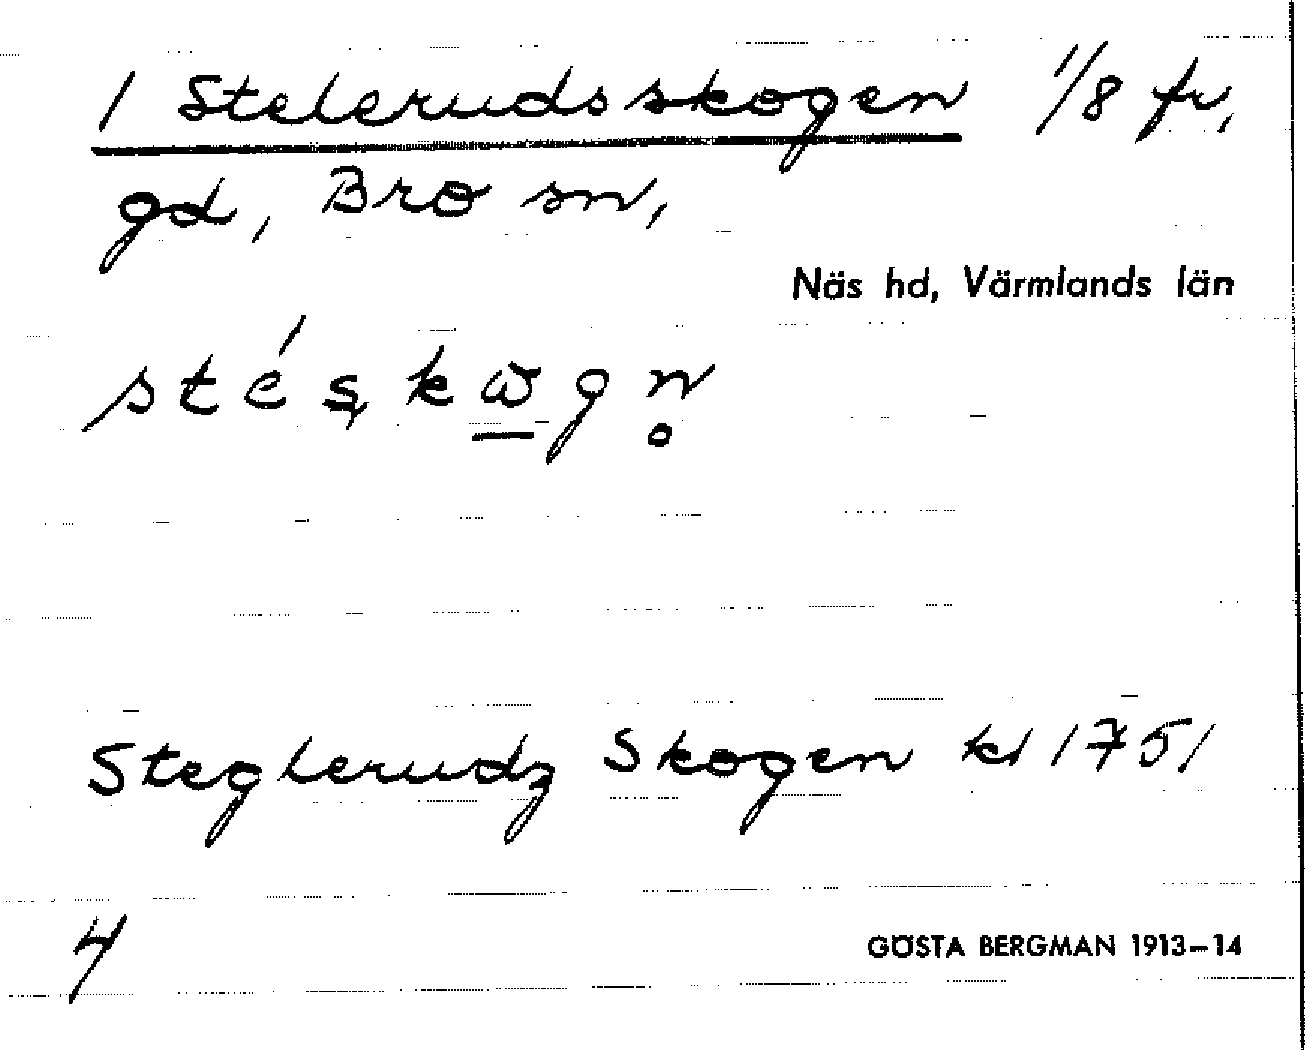 1 Stelerudsskogen 1/8 fr,
gd, Bro sn,
Näs hd, Värmlands län
stéskωgn̥
Steglerudz Skogen kl 1751
4
GÖSTA BERGMAN 1913-14